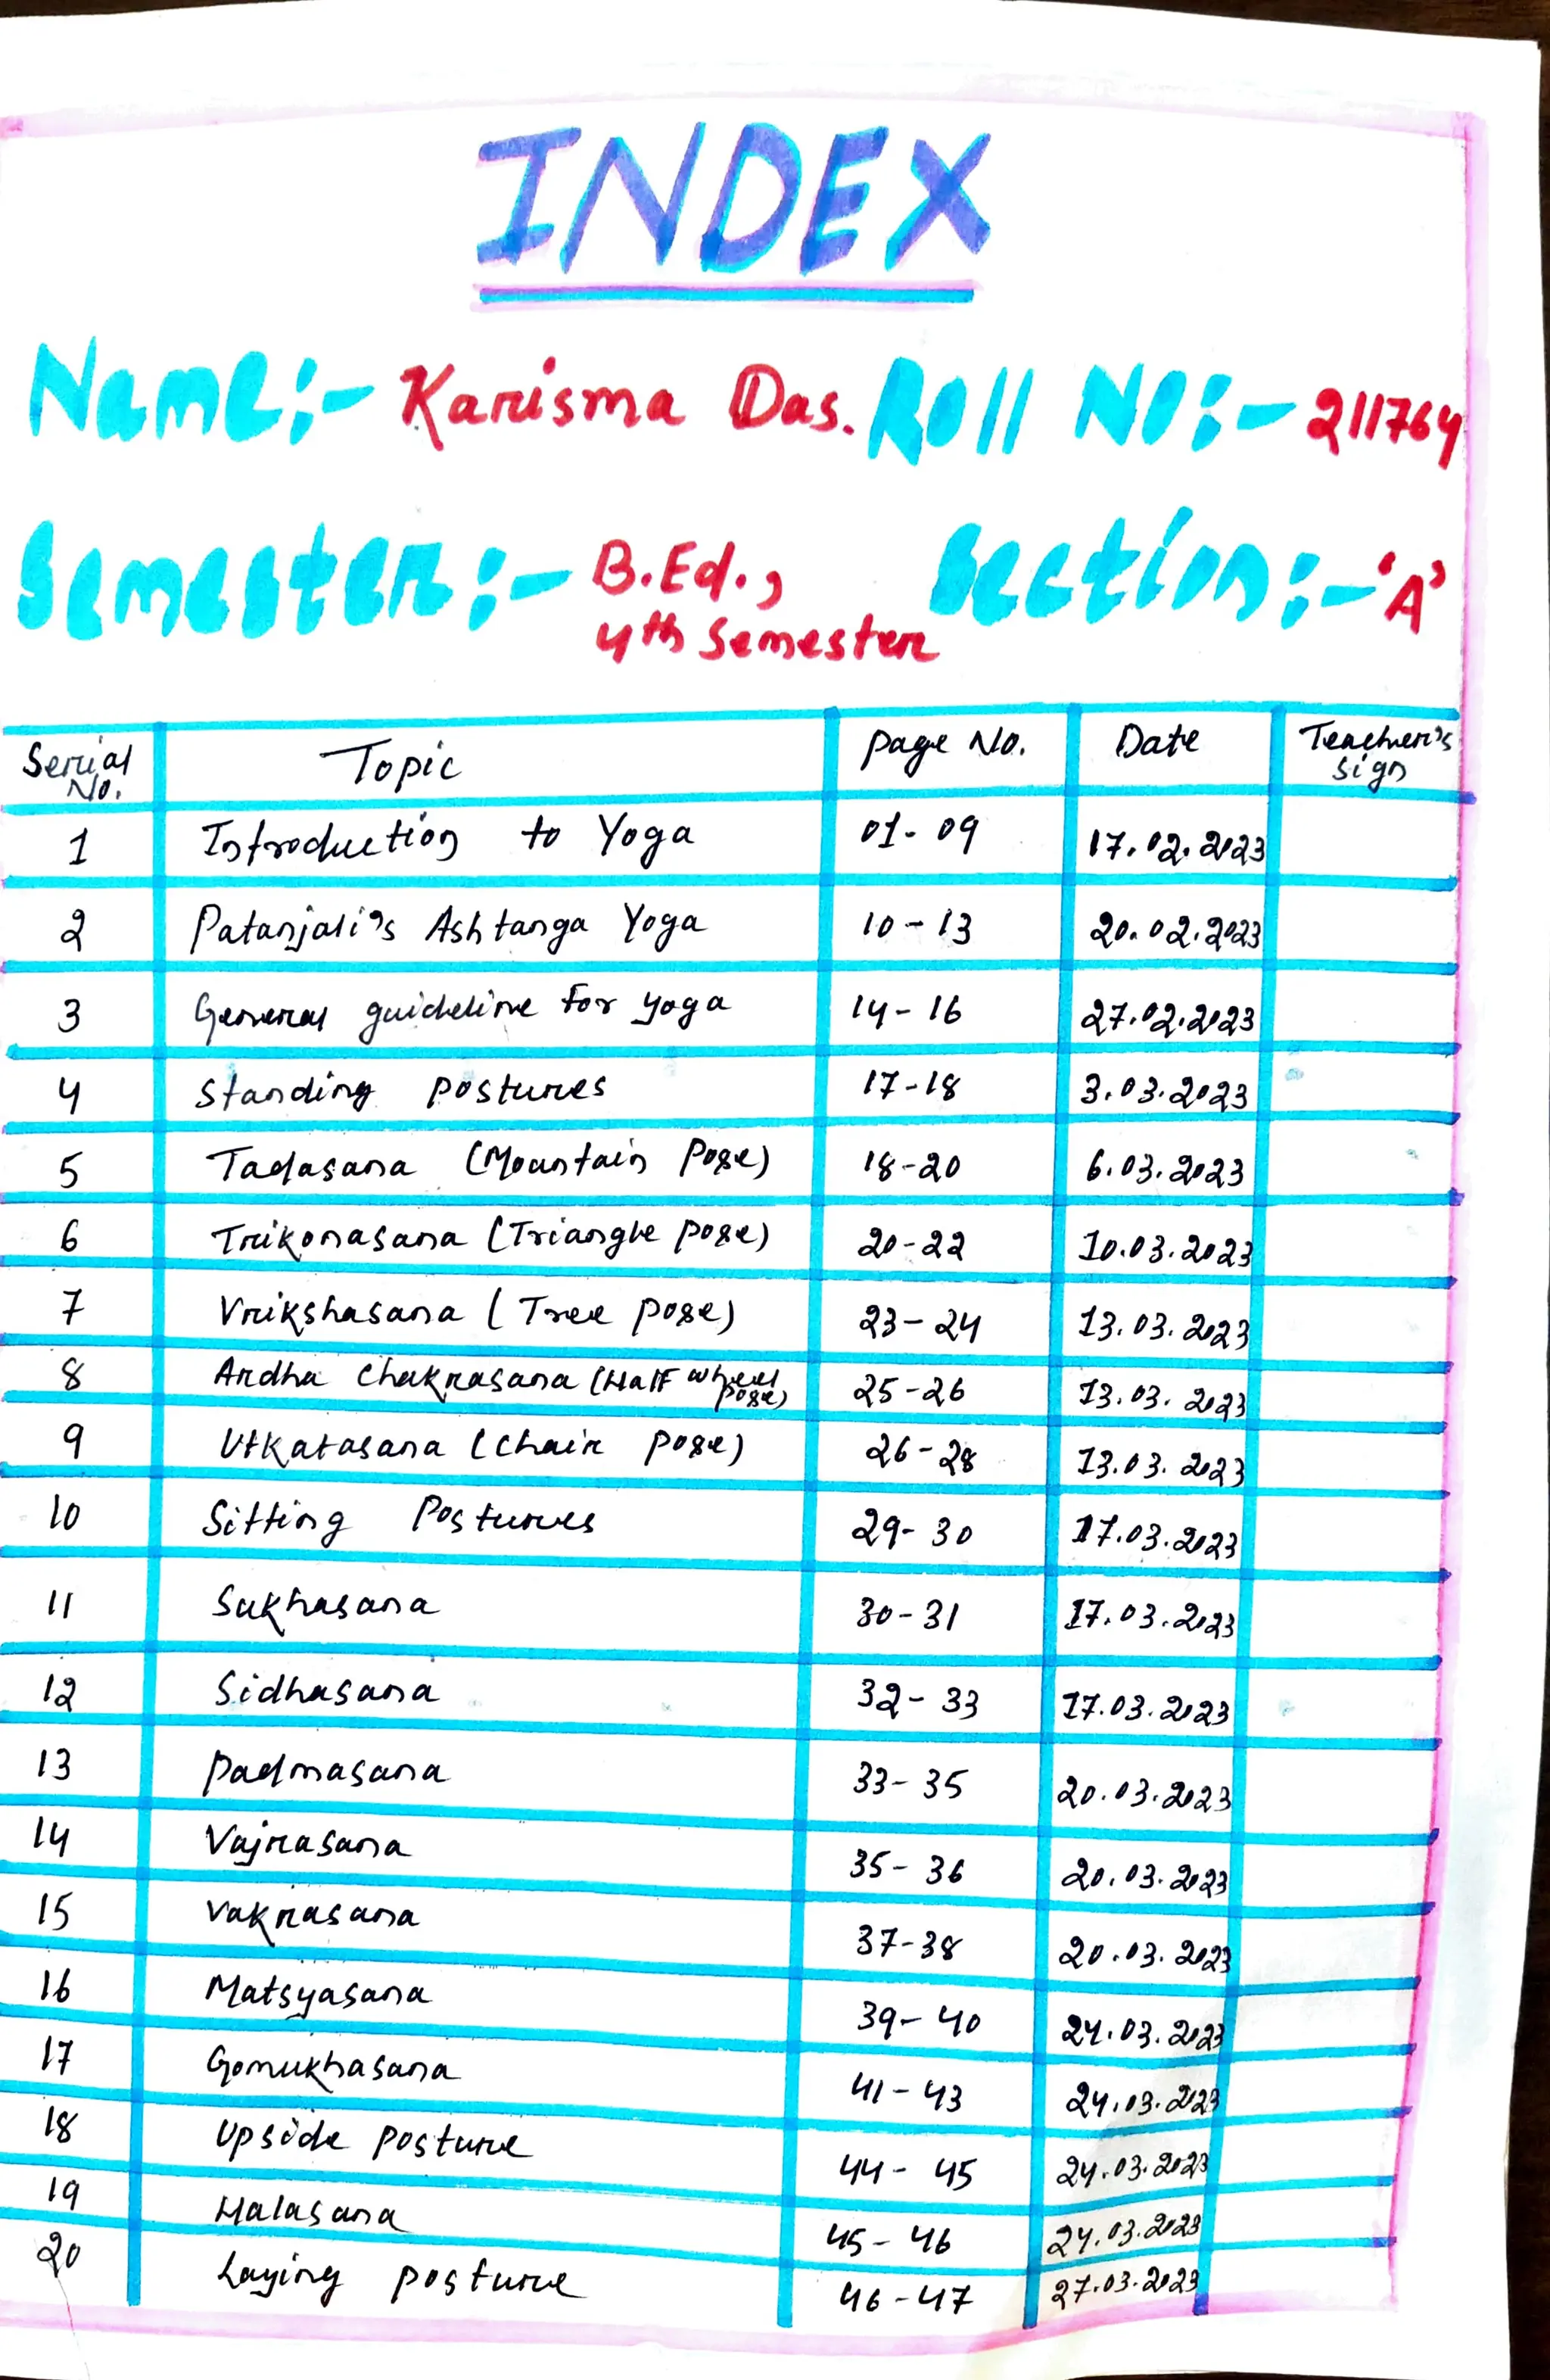 INDEX
Name:- Karisma Das. Roll No:- 211764
Semester:- B.Ed., 4th Semester Section:- 'A'
Serial No. Topic Page No. Date Teacher's Sign
1 Introduction to Yoga 01-09 17.02.2023
2 Patanjali's Ashtanga Yoga 10-13 20.02.2023
3 General guideline for yoga 14-16 27.02.2023
4 Standing postures 17-18 3.03.2023
5 Tadasana (Mountain Pose) 18-20 6.03.2023
6 Trikonasana (Triangle pose) 20-22 10.03.2023
7 Vrikshasana (Tree pose) 23-24 13.03.2023
8 Ardha Chakrasana (Half wheel pose) 25-26 13.03.2023
9 Utkatasana (Chair pose) 26-28 13.03.2023
10 Sitting Postures 29-30 17.03.2023
11 Sukhasana 30-31 17.03.2023
12 Sidhasana 32-33 17.03.2023
13 Padmasana 33-35 20.03.2023
14 Vajrasana 35-36 20.03.2023
15 Vakrasana 37-38 20.03.2023
16 Matsyasana 39-40 24.03.2023
17 Gomukhasana 41-43 24.03.2023
18 Upside posture 44-45 24.03.2023
19 Halasana 45-46 24.03.2023
20 Laying posture 46-47 27.03.2023